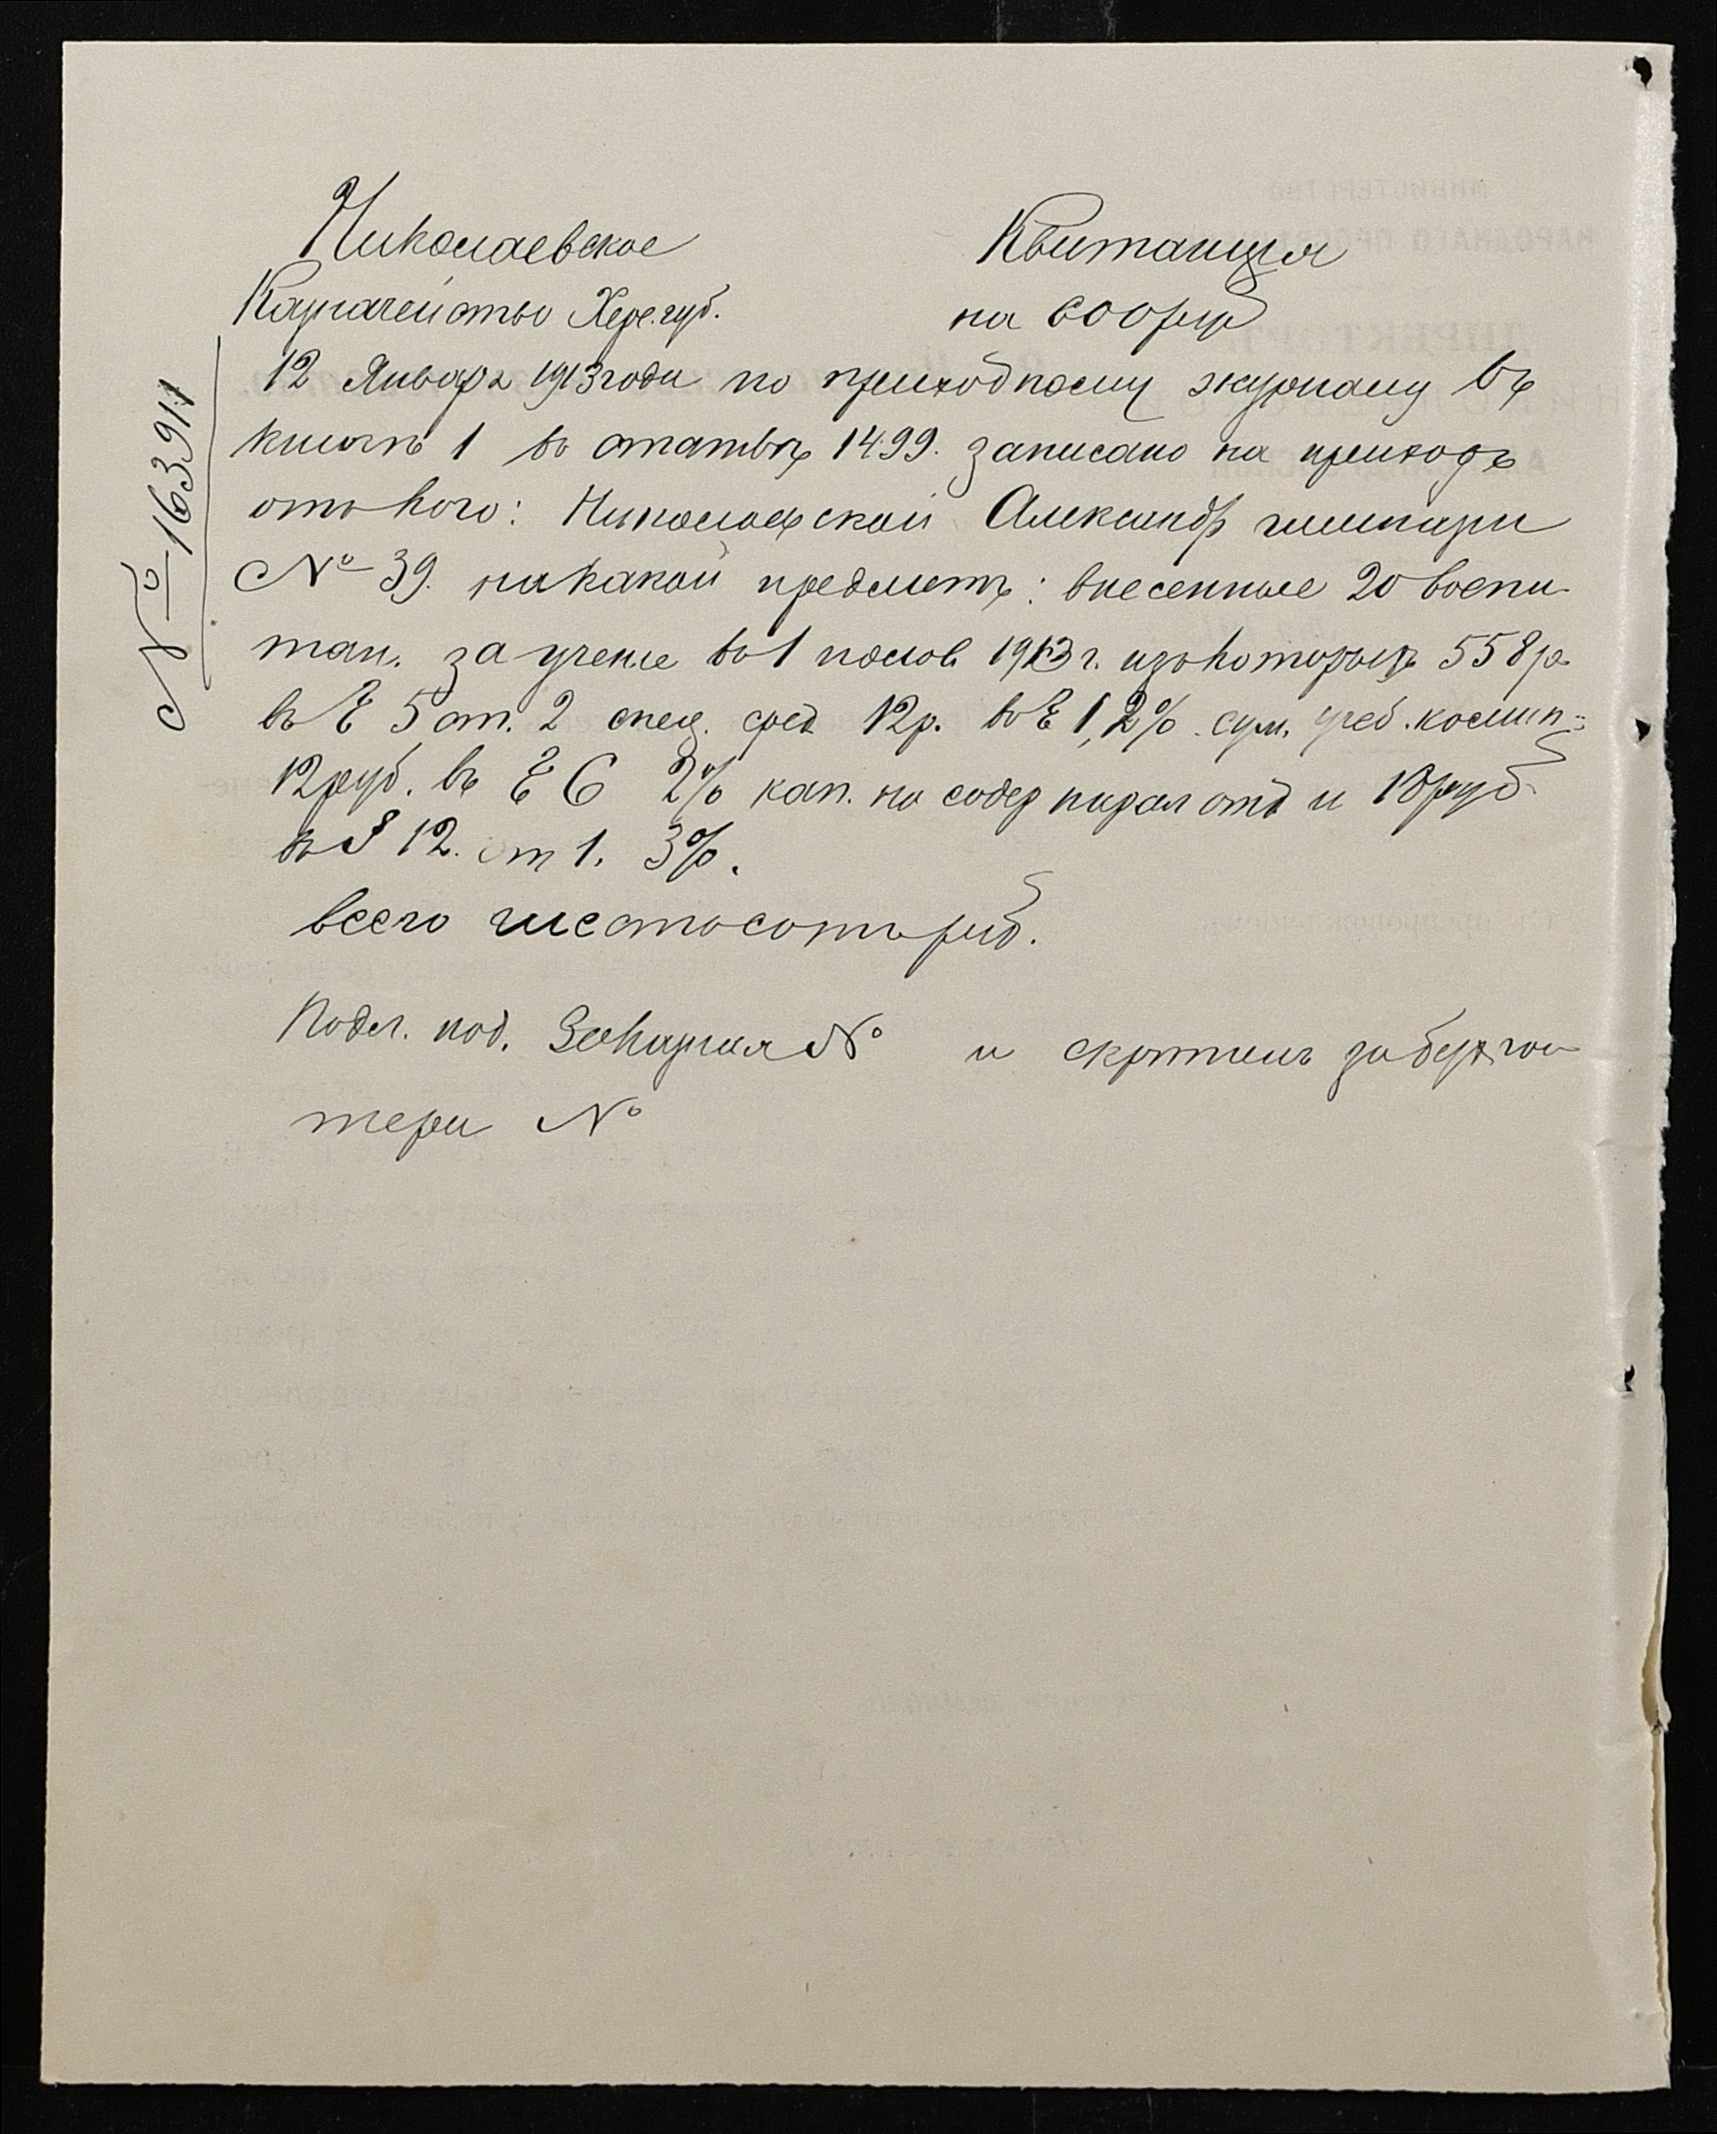 Николаевское
Казначейство Херс. губ.
Квитанция
на 600 руб
№ 163911
12 Января 1913 года по приходному журналу въ
книгѣ 1 въ статьѣ 1499. записано на приходъ
отъ кого: Николаевской Александр гимназии
№ 39. на какой предметъ: внесенные 20 воспи
тан. за учение въ 1 полов 1913 г. изъ которыхъ 558 р.
въ § 5 ст. 2 спец. сред 12 р. въ § 1, 2% сум. учеб. комит-
12 руб. въ § 6 2% кап. на содер парал отд и 18 руб
въ § 12. ст 1. 3%.
всего шестьсотъ руб.
Подл. под. За Казначея № и скрепилъ за бухгал
тера №